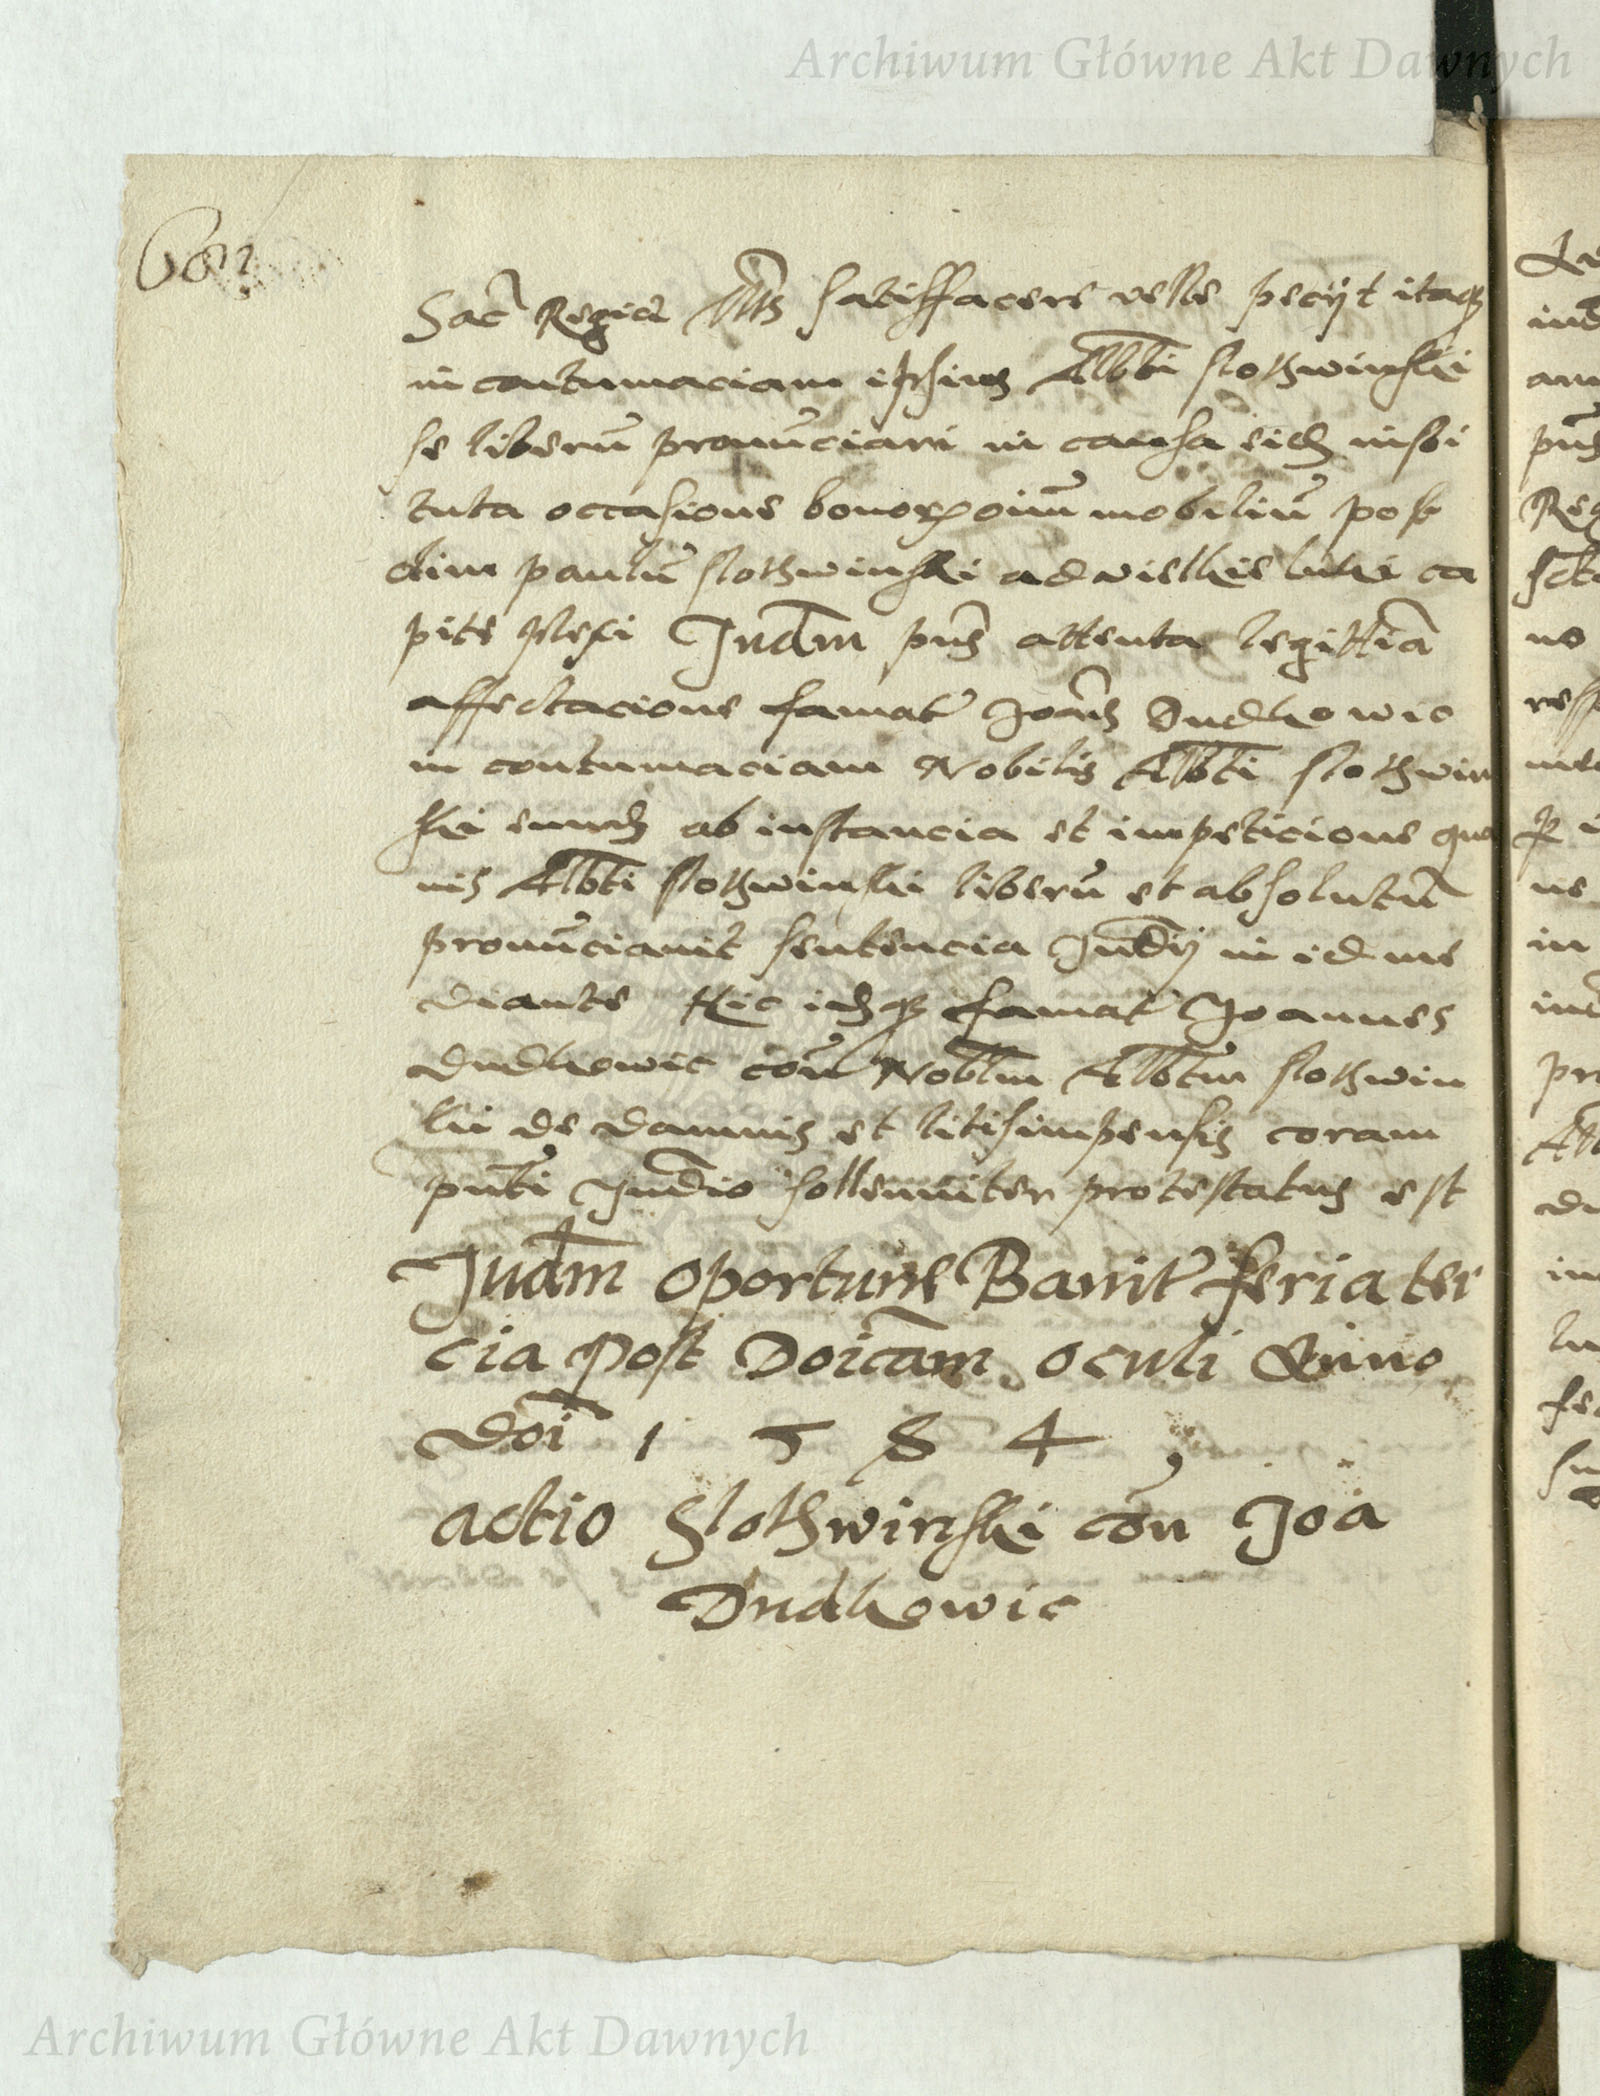 Archiwum Główne Akt Dawnych
Sac̃ Regiæ Mtis satisffacere velle peciit itaq
in contumaciam ipsius Albti slothwinski
se liberũ pronũciari in causa eid insti
tuta occasione bonor oim mobiliũ post
olim paulũ slothwinski ad wielkie luki ca
pite plexi Judm pns attenta legittĩa
affectacione famat Joañis Dudkowic
in contumaciam Nobilis Albti slothwin
ski eund ab instancia et impeticione que
nis Albti slothwinski liberũ et absolutũ
pronũciavit sentencia Judij in id me
diante Hic idq famat Joannes
Dudkowic con Noblm Albtm slothwin
ski de damnis et litis impensis coram
pnti Judio sollemniter protestatus est
Judm oportune Banit feria ter
cia Post Doicam oculi Anno
Doi 1 5 8 4
actio Slothwinski con Joa
Dudkowic
Archiwum Główne Akt Dawnych